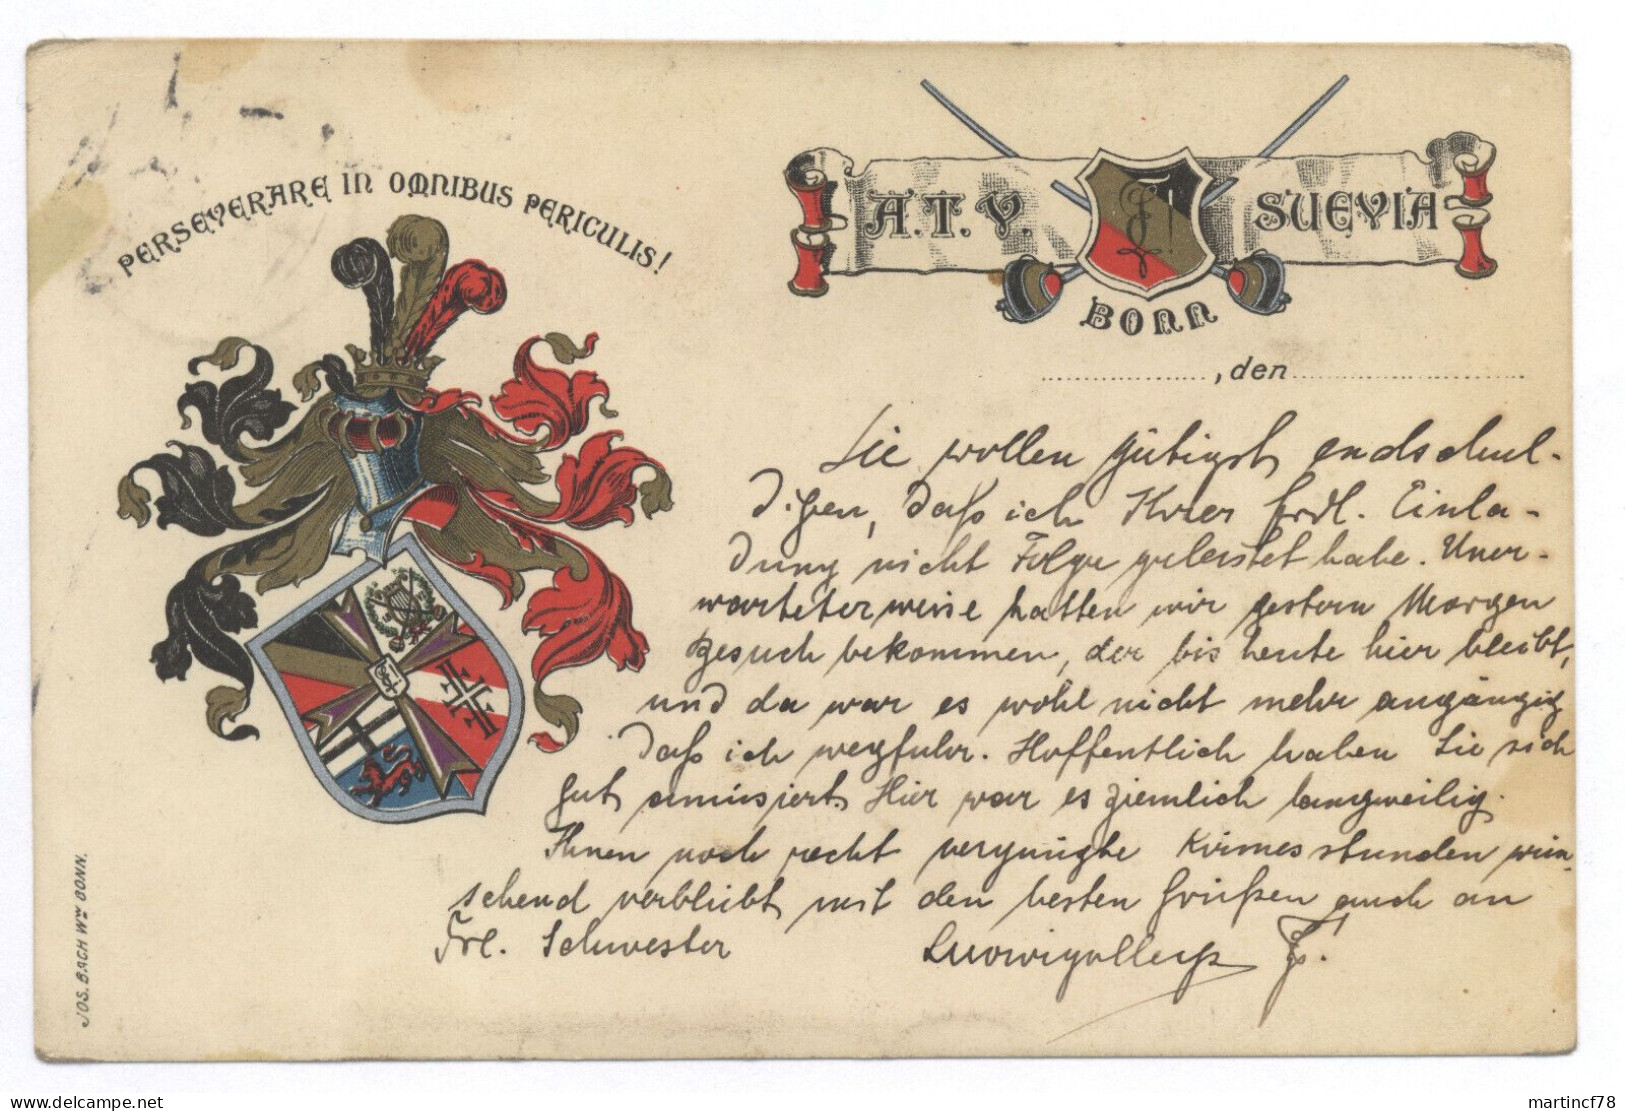 PERSEVERARE IN OMNIBUS PERICULIS!
A.T.V. SUEVIA
BONN
, den
Sie wollen gütigst endschul-
digen, daß ich Ihrer frdl. Einla-
dung nicht Folge geleistet habe. Uner-
warteterweise hatten wir gestern Morgen
Besuch bekommen, der bis heute hier bleibt,
und da war es wohl nicht mehr angängig
daß ich wegfuhr. Hoffentlich haben Sie sich
gut amüsiert. Hier war es ziemlich langweilig.
Ihnen noch recht vergnügte Kirmesstunden wün-
schend verbleibt mit den besten Grüßen auch an
Frl. Schwester
JOS. BACH Wwe BONN.
martincf78